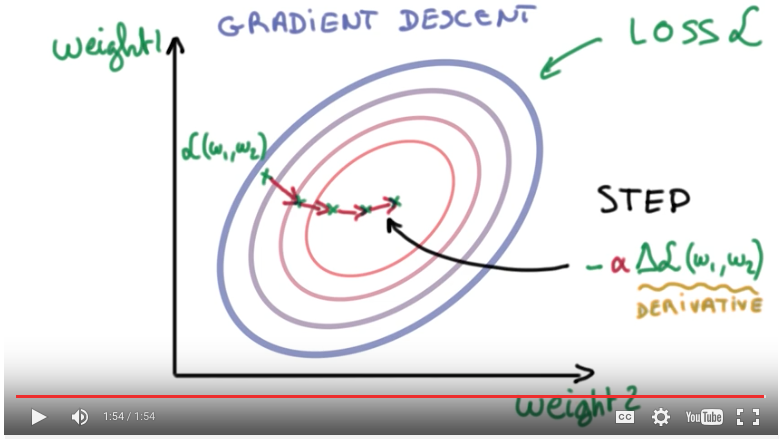 GRADIENT DESCENT
LOSS ℒ
weight 1
ℒ(w₁,w₂)
STEP
- α Δℒ(w₁,w₂)
DERIVATIVE
weight 2
1:54 / 1:54
CC
YouTube